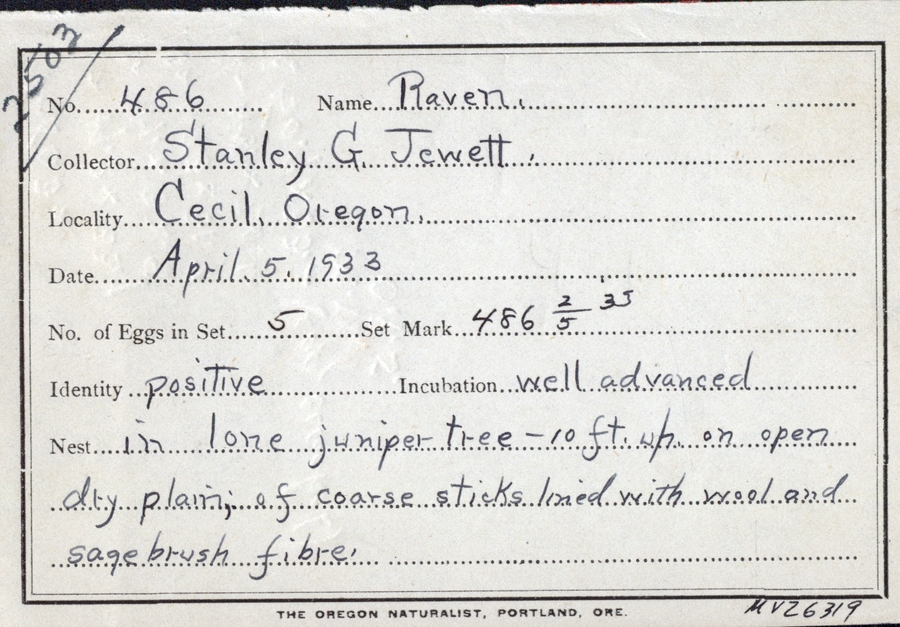 2503
No. 486 Name Raven.
Collector Stanley G. Jewett.
Locality Cecil, Oregon.
Date April 5, 1933
No. of Eggs in Set 5 Set Mark 486 2/5 33
Identity positive Incubation well advanced
Nest in lone juniper tree - 10 ft. up. on open
dry plain; of coarse sticks lined with wool and
sage brush fibre.
THE OREGON NATURALIST, PORTLAND, ORE.
MVZ6319